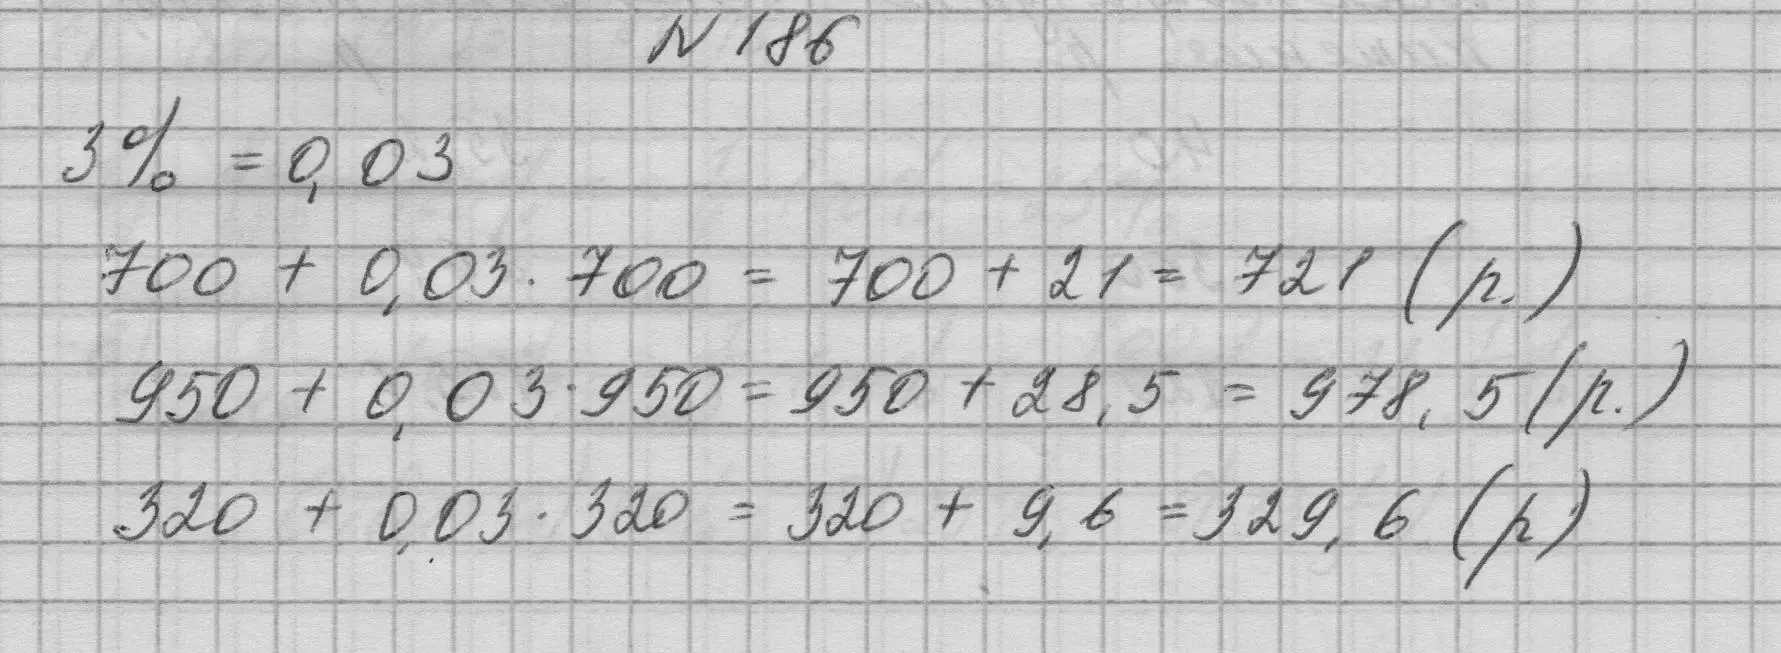 N 186
3% = 0,03
700 + 0,03 · 700 = 700 + 21 = 721 (р.)
950 + 0,03 · 950 = 950 + 28,5 = 978,5 (р.)
320 + 0,03 · 320 = 320 + 9,6 = 329,6 (р)